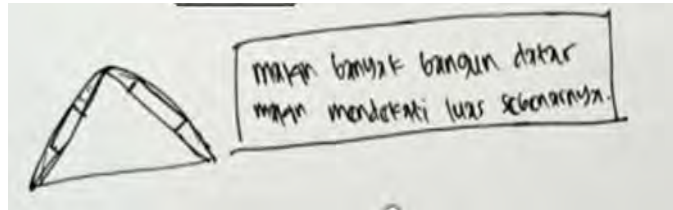 makin banyak bangun datar
makin mendekati luas sebenarnya.